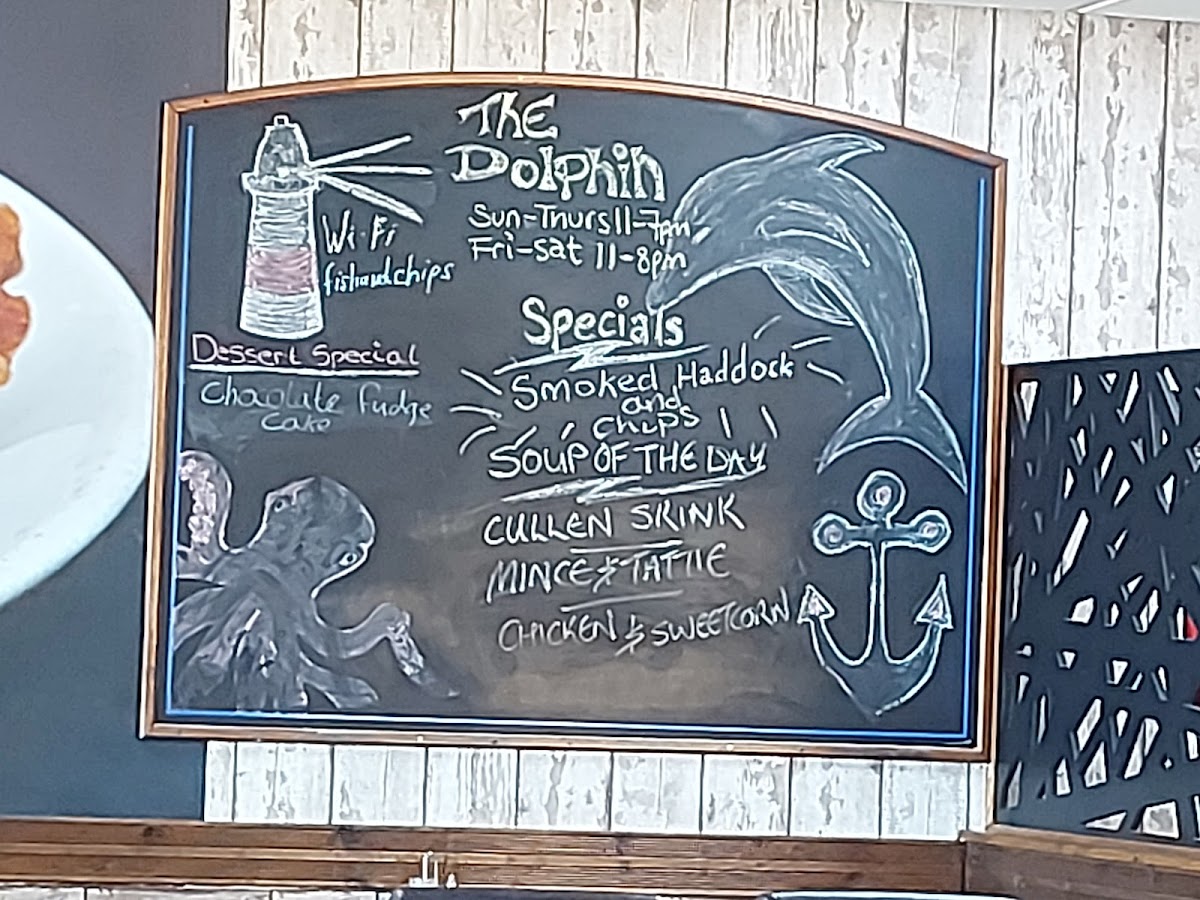 The
Dolphin
Sun-Thurs 11-7pm
Fri-sat 11-8pm
Wi-Fi
fishandchips
Dessert Special
Chaolate fudge
cake
Specials
Smoked Haddock
and
chips
SOUP OF THE DAY
CULLEN SKINK
MINCE & TATTIE
CHICKEN & SWEETCORN